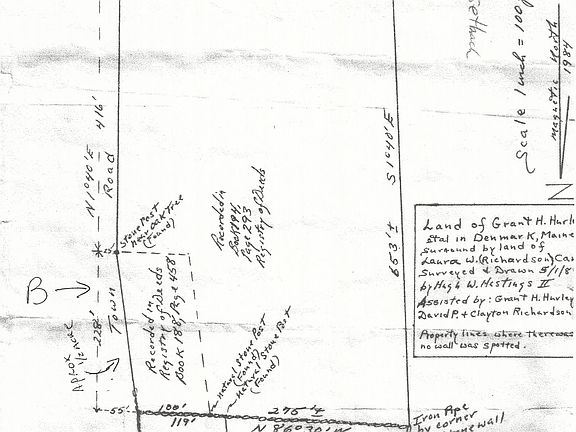 Scale 1 inch = 100
Magnetic North
1984
N 1°40'E 416'
Road
Town
228'
S 1°40'E
653'±
Stone Post
near Oak Tree
(Found)
Recorded in
Page 293
Registry of Deeds
Recorded in
Registry of Deeds
Book 188, Page 458
B
Aprox
1/2 Acre
Natural Stone Post
(Found)
(Found)
55'
100'
119'
275'±
N 86°30'W
Iron Pipe
by corner
Land of Grant H. Hurle
stal in Denmark, Maine
surround by land of
Laura W. (Richardson) Ca
Surveyed & Drawn 5/1/8
by Hugh W. Hastings II
Assisted by: Grant H. Hurley
David P. & Clayton Richardson
Property lines where there was
no wall was spotted.